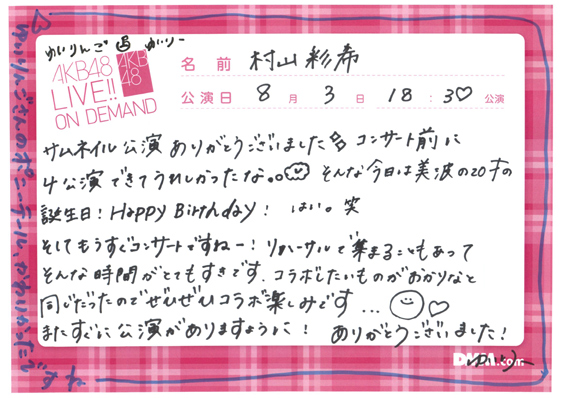 ゆいりんご 過 ゆいりー
AKB48
LIVE!!
ON DEMAND
AKB
48
名前 村山彩希
公演日 8月 3日 18:30♡公演
サムネイル公演ありがとうございました コンサート前に
4公演できてうれしかったな。。 そんな今日は美波の20才の
誕生日! Happy Birthday! はい。笑
そしてもうすぐコンサートですねー! リハーサルで集まることもあって
そんな時間がとてもすきです。コラボしたいものがおかりなと
同じだったのでぜひぜひコラボ楽しみです...♡
またすぐに公演がありますように! ありがとうございました!
DMM.com
ゆいりー
ゆいりんごさんのポニーテール、かわいかったですね